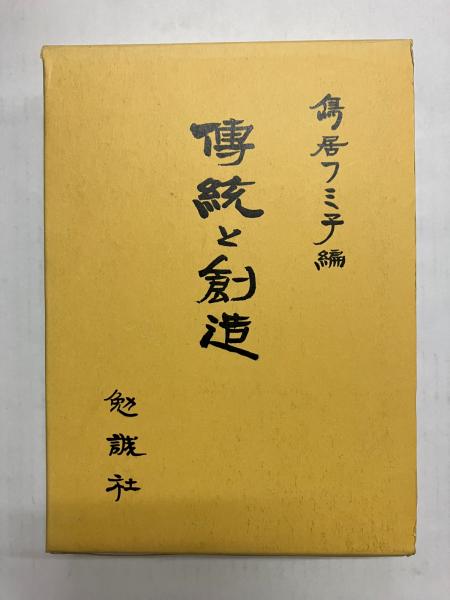 鳥居フミ子編
傳統と創造
勉誠社